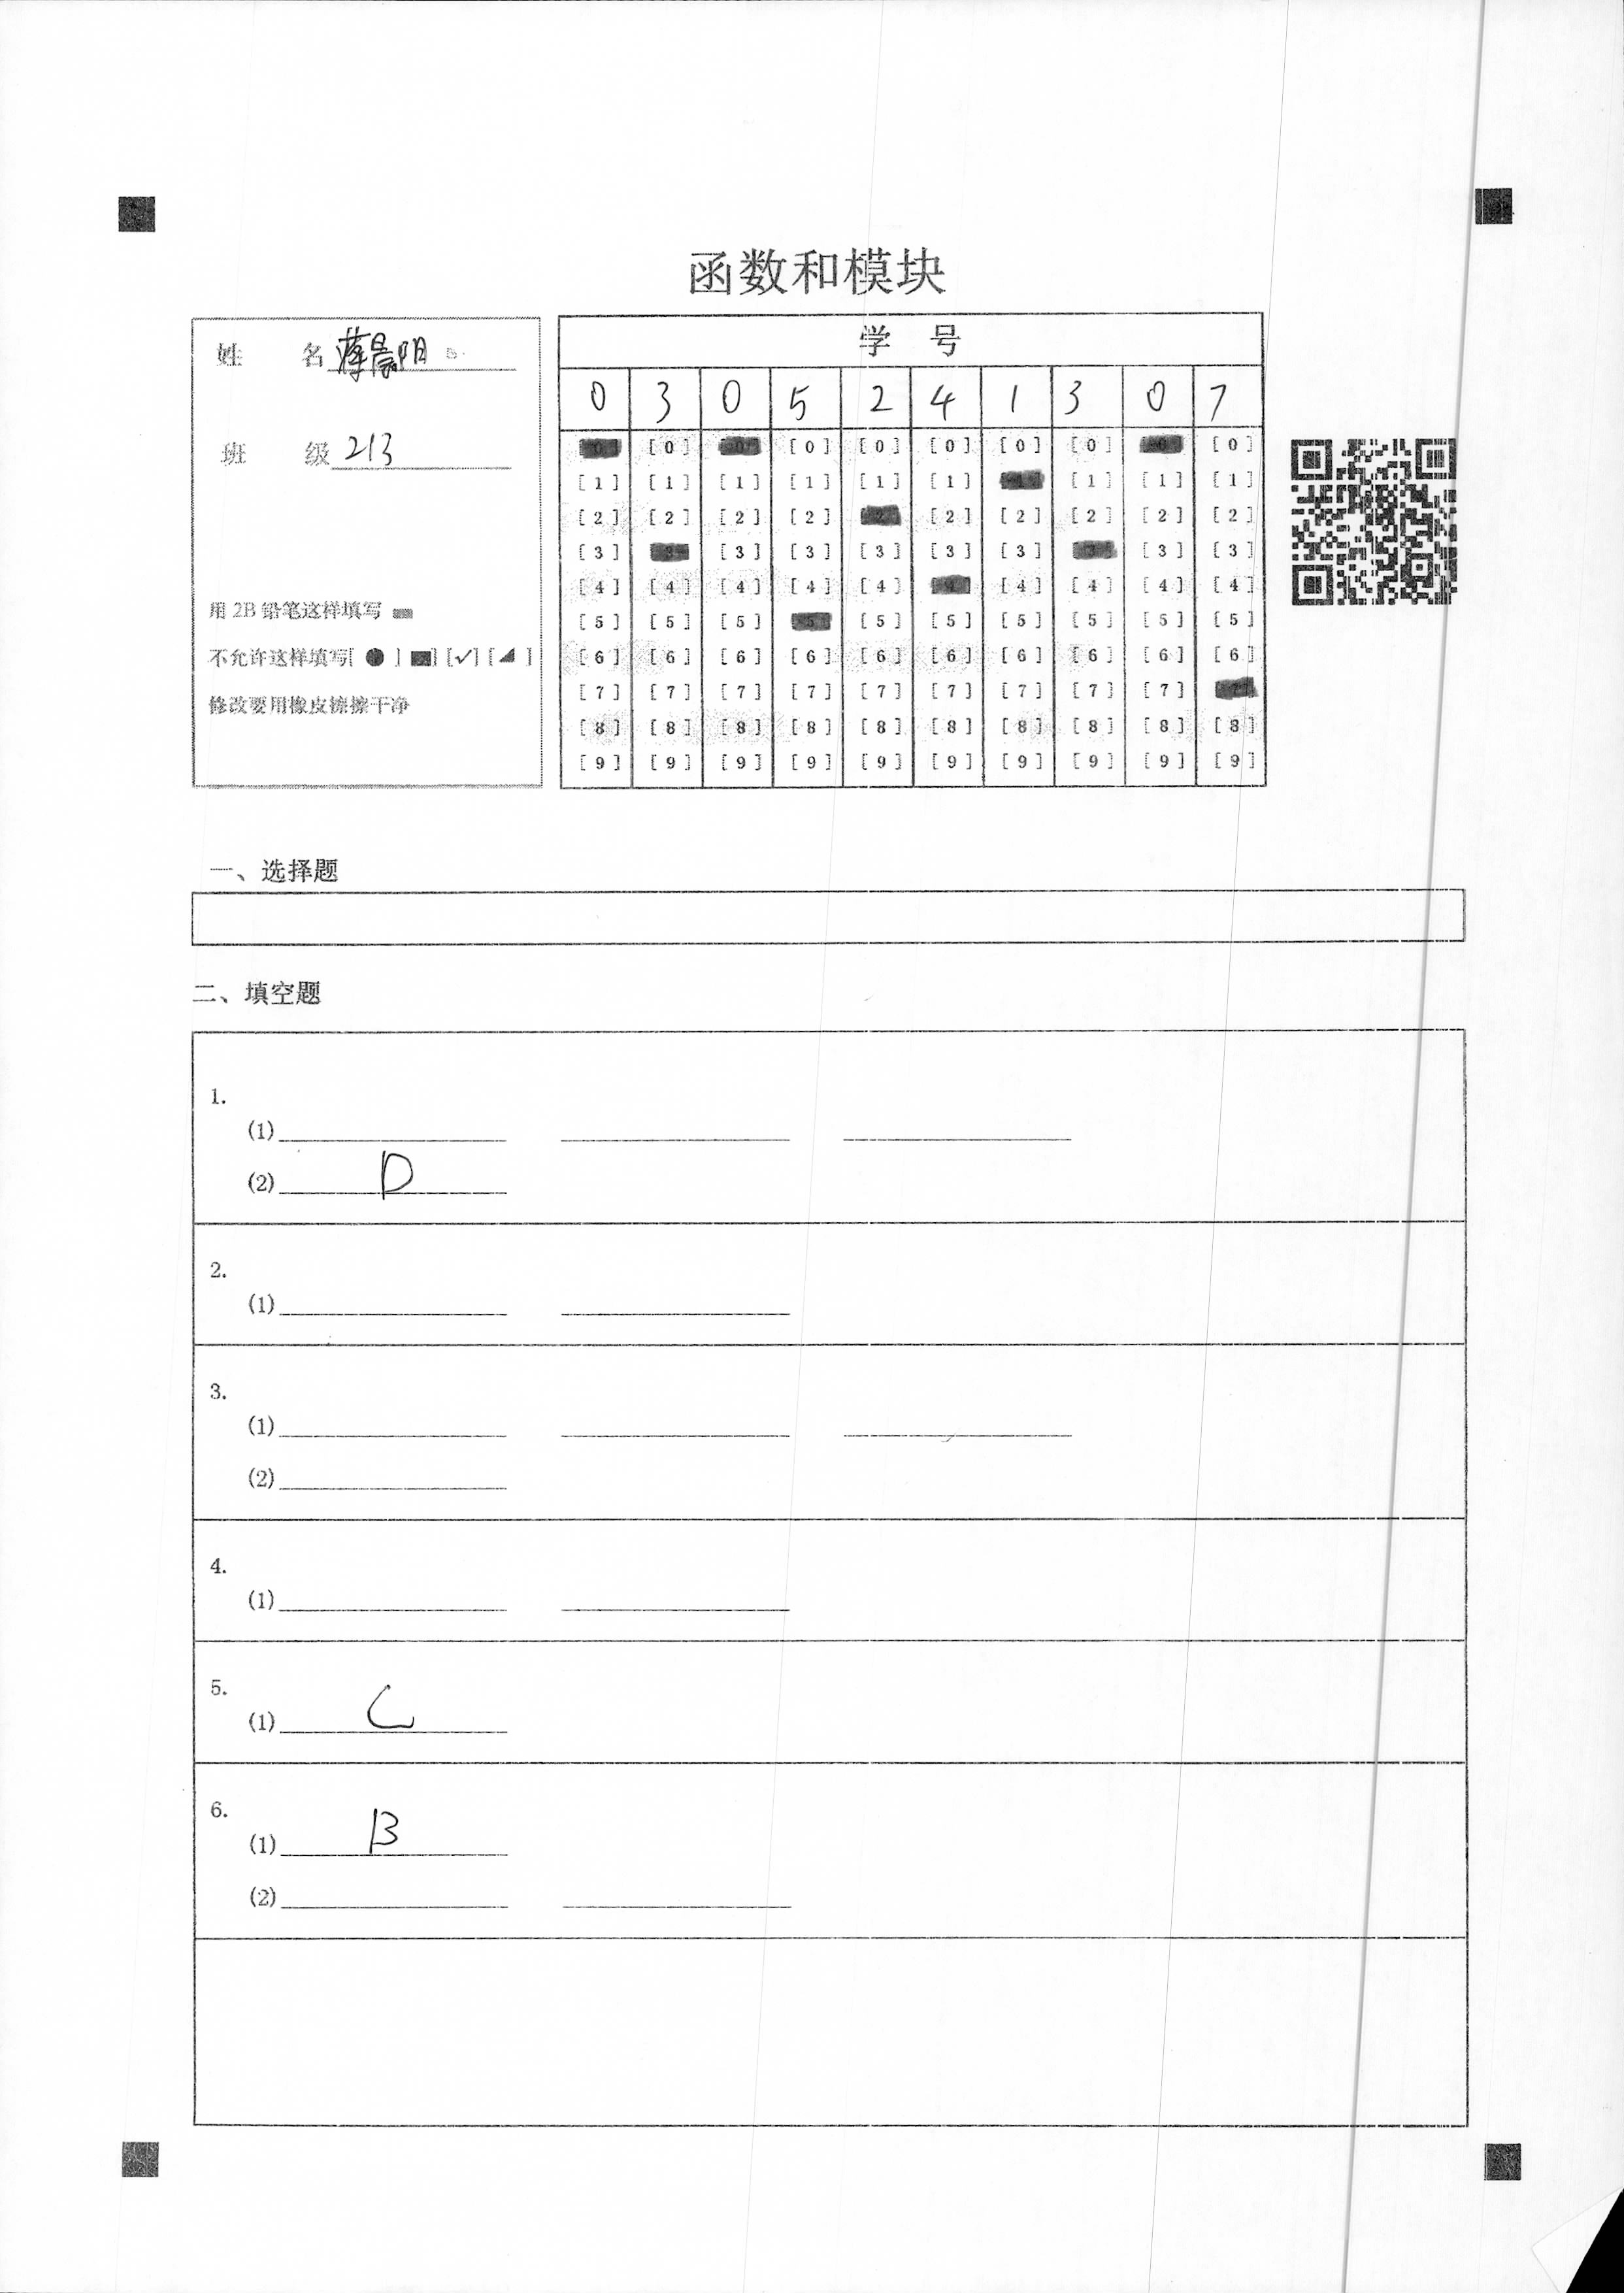 函数和模块
姓 名 蒋晨阳
班 级 213
用 2B 铅笔这样填写
不允许这样填写[ ● ] [■] [✓] [◢ ]
修改要用橡皮擦擦干净
学 号
0 3 0 5 2 4 1 3 0 7
[0] [0] [0] [0] [0] [0] [0] [0] [0] [0]
[1] [1] [1] [1] [1] [1] [1] [1] [1] [1]
[2] [2] [2] [2] [2] [2] [2] [2] [2] [2]
[3] [3] [3] [3] [3] [3] [3] [3] [3] [3]
[4] [4] [4] [4] [4] [4] [4] [4] [4] [4]
[5] [5] [5] [5] [5] [5] [5] [5] [5] [5]
[6] [6] [6] [6] [6] [6] [6] [6] [6] [6]
[7] [7] [7] [7] [7] [7] [7] [7] [7] [7]
[8] [8] [8] [8] [8] [8] [8] [8] [8] [8]
[9] [9] [9] [9] [9] [9] [9] [9] [9] [9]
一、选择题
二、填空题
1.
(1)
(2) D
2.
(1)
3.
(1)
(2)
4.
(1)
5.
(1) C
6.
(1) B
(2)